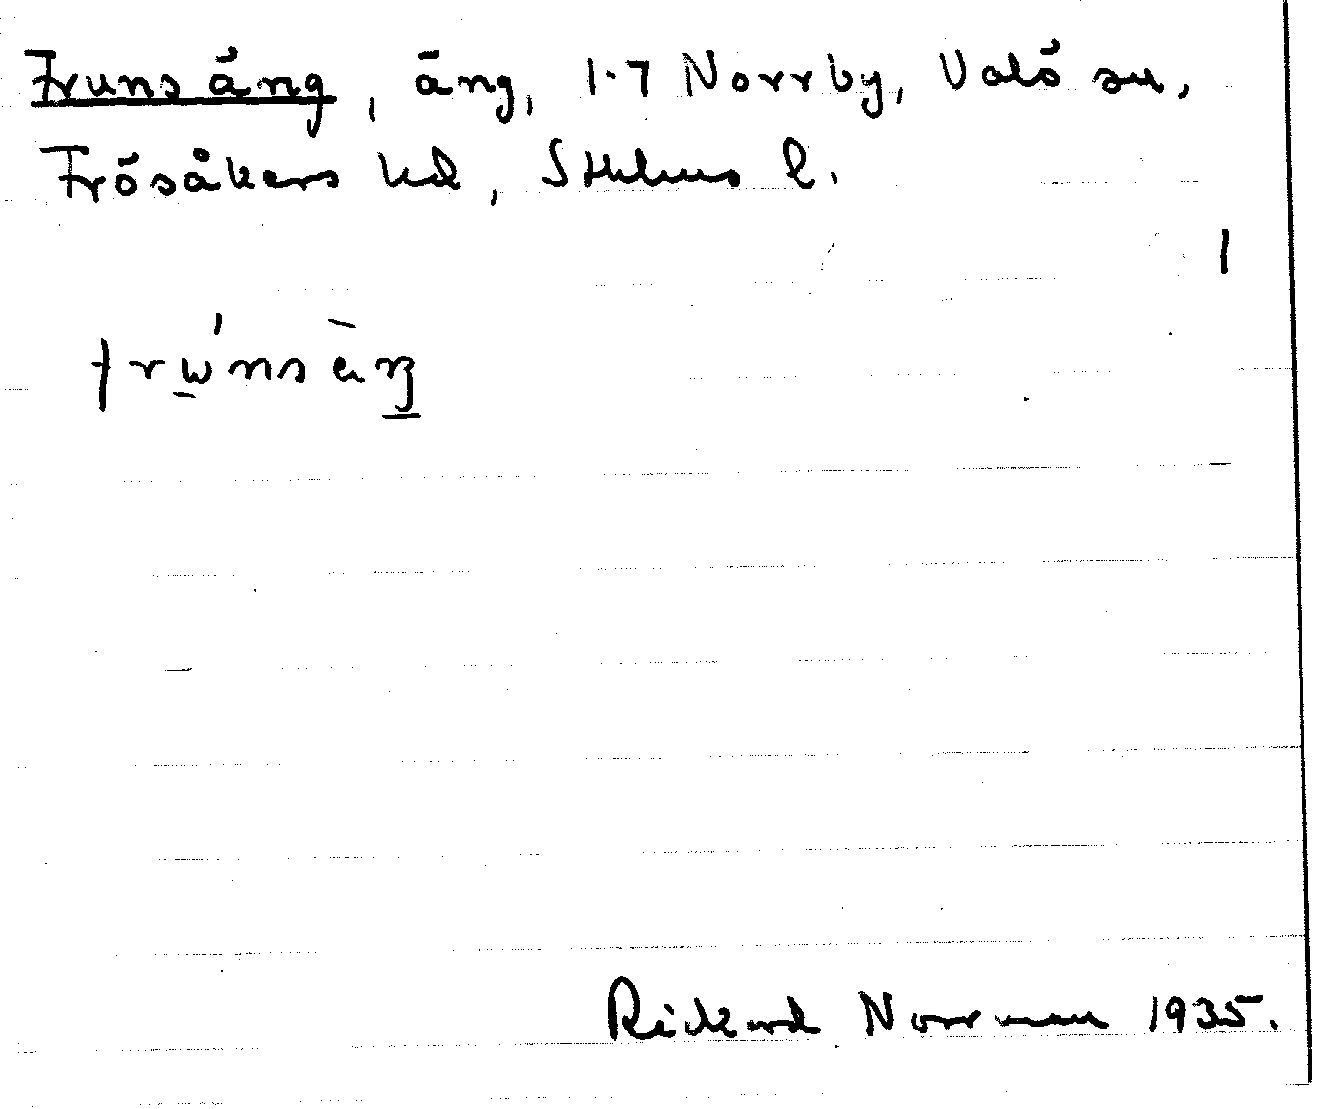 Fruns äng, äng, 1-7 Norrby, Valö sn,
Frösåkers hd, Sthlms l.
1
frẃnsὲŋ
Rickard Norrman 1935.